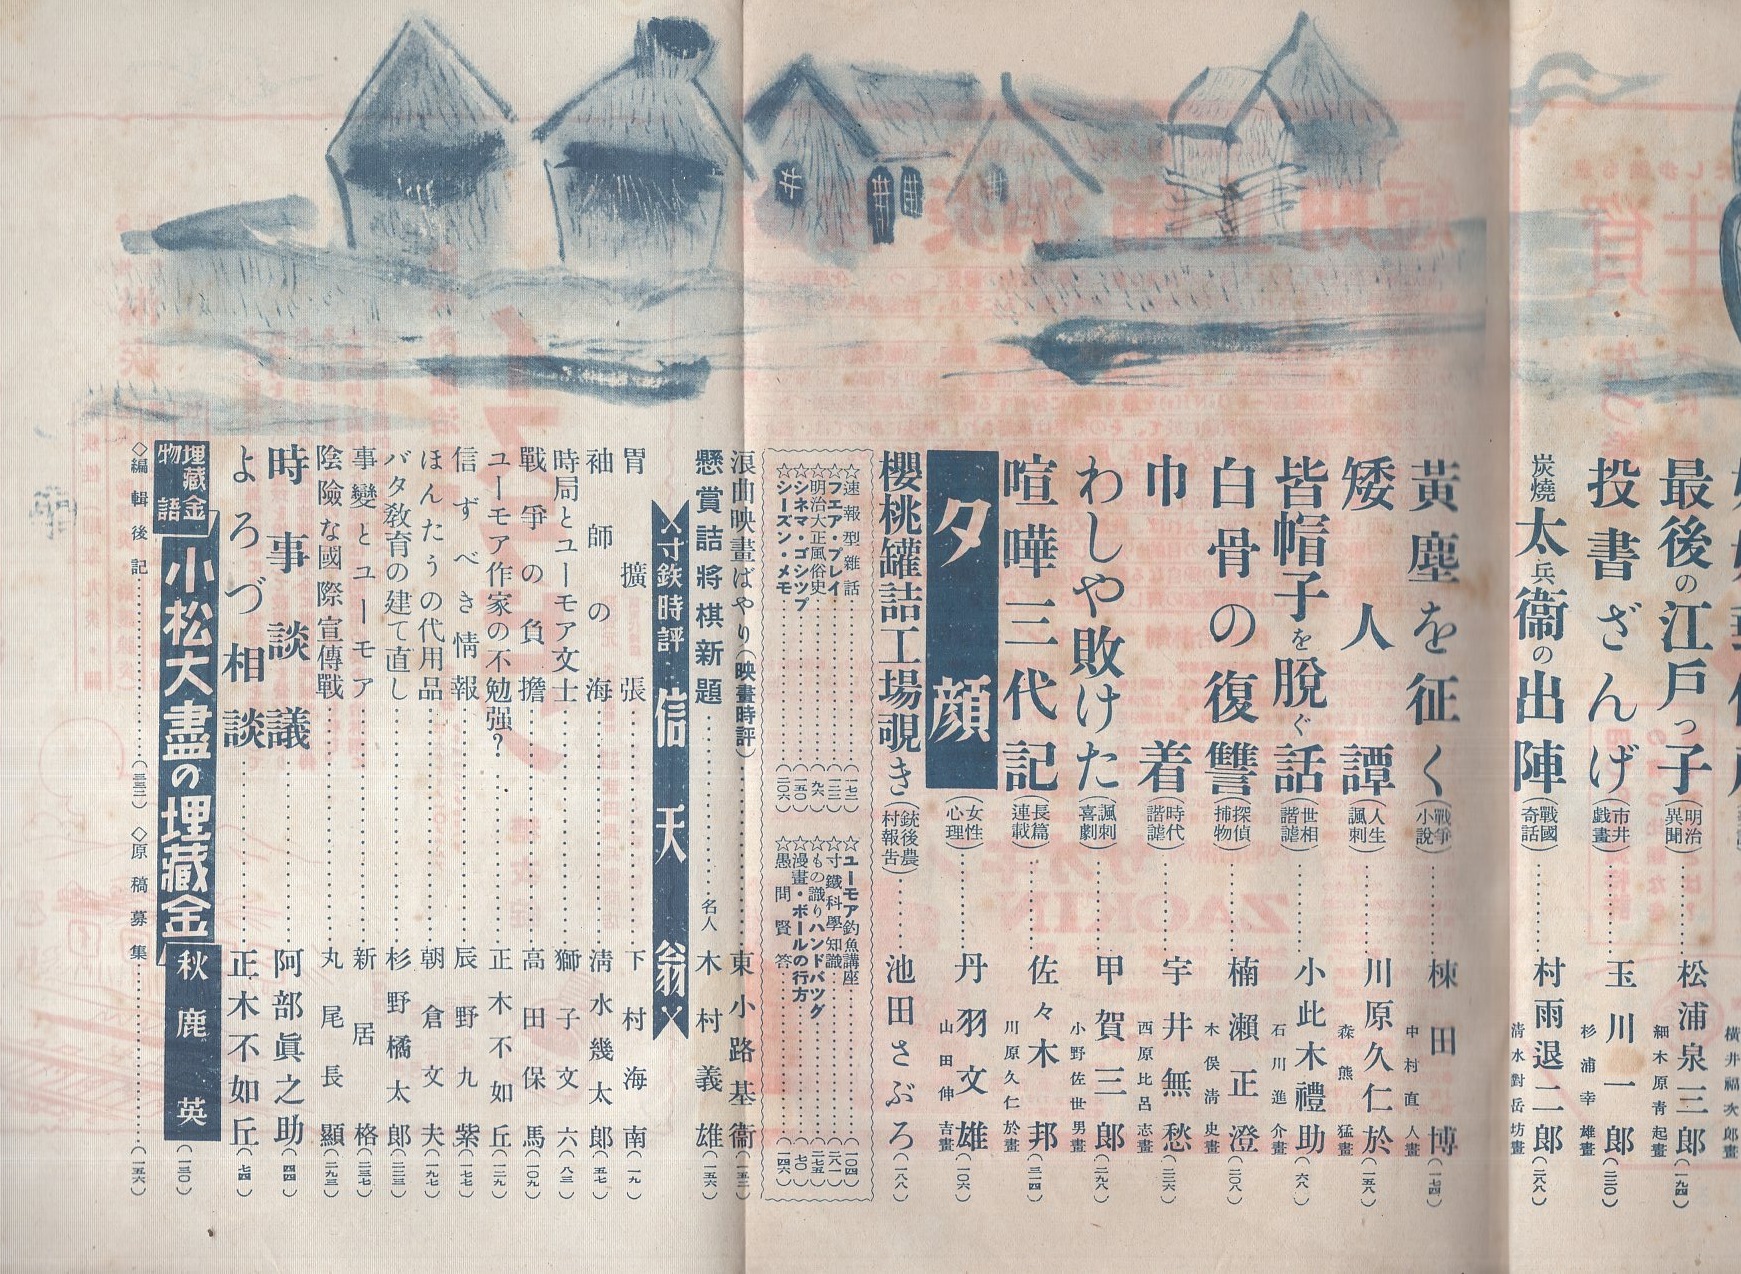 最後の江戸っ子(明治異聞)………松浦泉三郎(一九四)
細木原青起畫
投書ざんげ(市井戯畫)………玉川一郎(二三〇)
杉浦幸雄畫
炭燒太兵衞の出陣(戰國奇話)………村雨退二郎(二八八)
清水對岳坊畫
黃塵を征く(戰爭小説)………棟田博(一七四)
中村直人畫
矮人譚(人生諷刺)………川原久仁於(一五八)
森熊猛畫
皆帽子を脱ぐ話(世相諧謔)………小此木禮助(六八)
石川進介畫
白骨の復讐(探偵捕物)………楠瀨正澄(二〇八)
木俣淸史畫
巾着(時代諧謔)………宇井無愁(三三六)
西原比呂志畫
わしや敗けた(諷刺喜劇)………甲賀三郎(二九八)
小野佐世男畫
喧嘩三代記(長篇連載)………佐々木邦(三一四)
川原久仁於畫
夕顔(女性心理)………丹羽文雄(一〇六)
山田伸吉畫
櫻桃罐詰工場覗き(銃後農村報告)………池田さぶろ(一八八)
☆速報型雜話………(七二)
☆フエア・プレイ………
☆明治大正風俗史………(九六)
☆シネマ・ゴシツプ………(一五〇)
☆シーズン・メモ………(二〇六)
☆ユーモア釣魚講座………(一〇四)
☆寸鐵科學知識………(二八一)
☆もの識りハンドバツグ………(二七五)
☆漫畫・ボールの行方………(七〇)
☆愚問賢答………(一四六)
浪曲映畫ばやり(映畫時評)………東小路基衞(一五二)
懸賞詰將棋新題………名人 木村義雄(一五六)
寸鉄時評 信天翁
冐擴張………下村海南(一九)
袖師の海………淸水幾太郎(五七)
時局とユーモア文士………獅子文六(八三)
戰爭の負擔………高田保馬(一〇九)
ユーモア作家の不勉强?………正木不如丘(一二九)
信ずべき情報………辰野九紫(一七七)
ほんたうの代用品………朝倉文夫(一九七)
バタ敎育の建て直し………杉野橘太郎(二二三)
事變とユーモア………新居格(二三七)
陰險な國際宣傳戰………丸尾長顯(二九三)
時事談議………阿部眞之助(四四)
よろづ相談………正木不如丘(七四)
埋藏金物語 小松大盡の埋藏金 秋鹿英(一三〇)
◇編輯後記………(三三二) ◇原稿募集………(一五六)